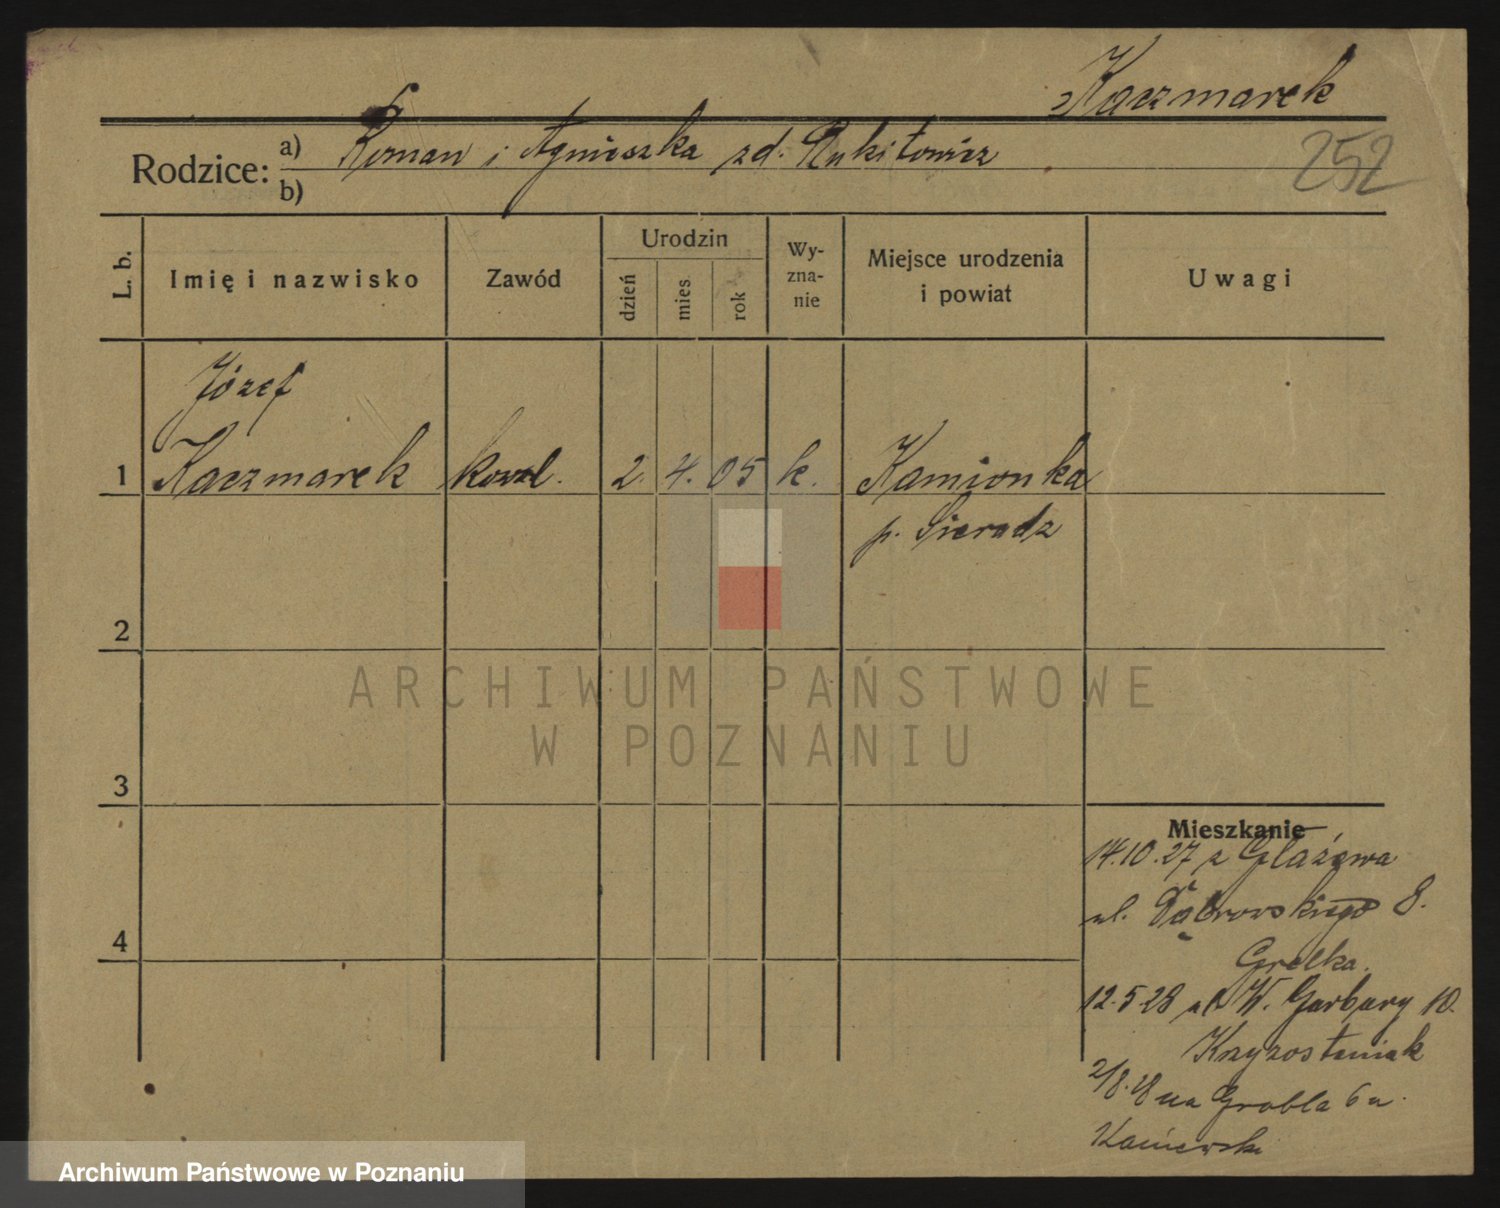 Kaczmarek
252
Rodzice: a) Roman i Agnieszka zd. Rukitowicz
b)
L. b. Imię i nazwisko Zawód Urodzin dzień mies rok Wy-zna-nie Miejsce urodzenia i powiat Uwagi
Józef
1 Kaczmarek kowal. 2. 4. 05 k. Kamionka
p. Sieradz
2
ARCHIWUM PAŃSTWOWE
W POZNANIU
3
Mieszkanie
14.10.27 z Głażewa
ul. Dąbrowskiego 8.
4
Grelka.
12.5.28 W. Garbary 10.
Krzyżostaniak
2/8.28 na Grobla 6
Kaniewski
Archiwum Państwowe w Poznaniu